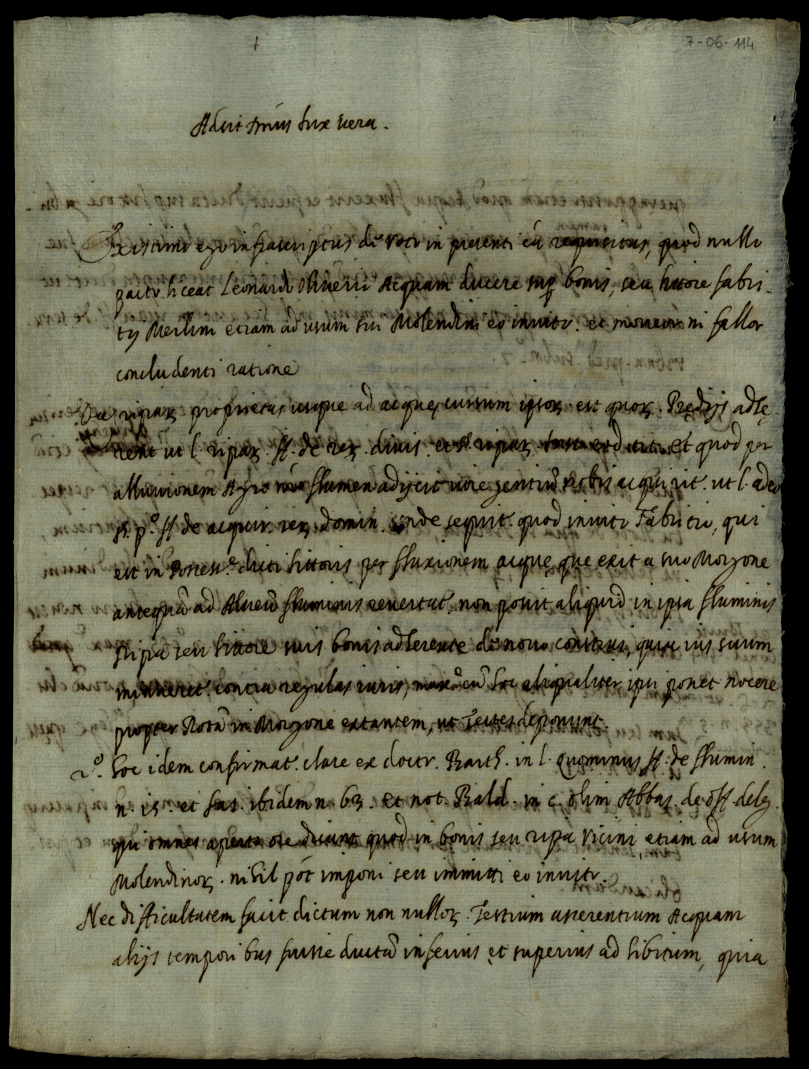 7-06-114
†
Adsit lux vera.
Existimo ego infrascriptus de voto in presenti ca requisitus, quod nullo
pacto liceat Leonardo Oliverii Acquam ducere sup. bonis, seu littore Fabri-
tij Merlini etiam ad usum sui Molendini eo invito. et moveor ni fallor
concludenti ratione
riparꝝ proprietas usque ad acquę cursum ipsorꝝ est quorꝝ Prędijs adhę-
rent ut l. riparꝝ ff. de rerꝝ divis. et riparꝝ et quod per
alluvionem Agro flumen adijcit iure gentiũ nobis acquirit. ut l. adeo
§. p.º ff. de acquir. rerꝝ domin. unde sequit. quod invito Fabritio, qui
est in Possess.e dicti littoris per fluxionem acquę, que exit a suo Morgone
antequã ad Alveũ fluminis revertat., non possit aliquid in ipsa fluminis
ripa seu littore suis bonis adherente de novo construi, quasi ius suum
contra regulas iuris, max.e cũ hoc ipsi nocere
propter Rotã in Morgone extantem, ut Testes deponunt.
2.º hoc idem confirmat. clare ex doctr. Barth. in l. quominus ff. de flumin.
n. 15. et ibidem n. 63. et not. Bald. in c. olim Abbas. de off. deleg.
qui omnes aperto ore dicunt quod in bonis seu ripa vicini, etiam ad usum
Molendinorꝝ. nihil põt imponi seu immitti eo invito.
Nec difficultatem facit dictum non nullorꝝ. Testium asserentium Acquam
alijs temporibus fuisse ductã inferius et superius ad libitum, quia